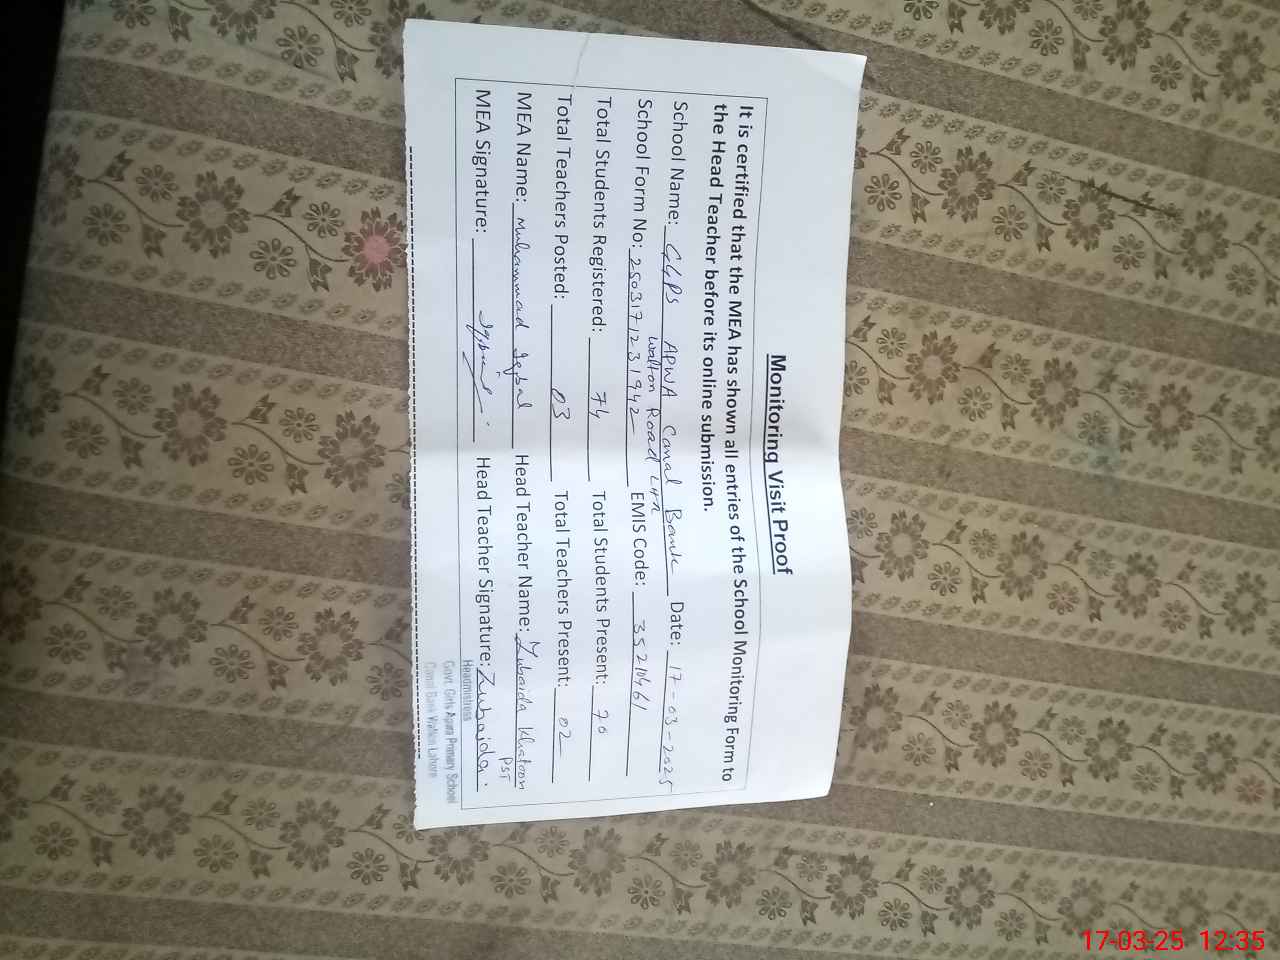 Monitoring Visit Proof
It is certified that the MEA has shown all entries of the School Monitoring Form to
the Head Teacher before its online submission.
School Name: GGPS APWA Canal Bank Date: 17-03-2025
Walton Road LHR
School Form No: 2503171231942 EMIS Code: 35210461
Total Students Registered: 74 Total Students Present: 70
Total Teachers Posted: 03 Total Teachers Present: 02
MEA Name: Muhammad Iqbal Head Teacher Name: Zubaida Khatoon
PST
MEA Signature: Iqbal Head Teacher Signature: Zubaida
Headmistress
Govt. Girls Apwa Primary School
Canal Bank Walton Lahore
17-03-25 12:35